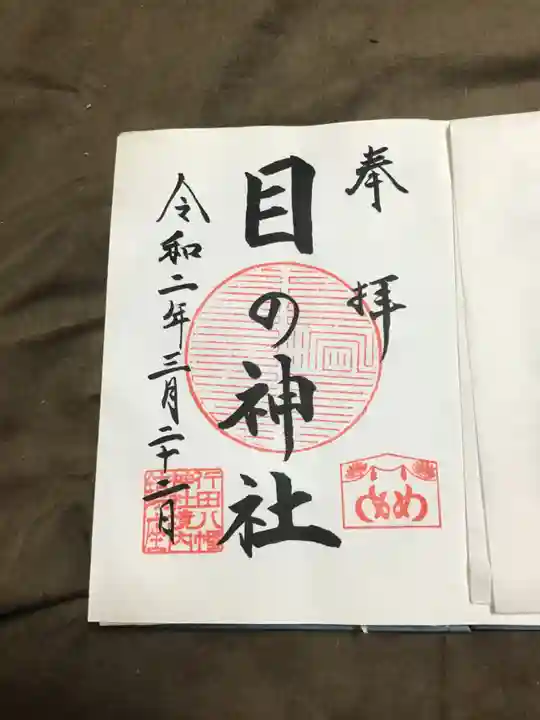 奉拝
目の神社
令和二年三月二十二日
行田八幡